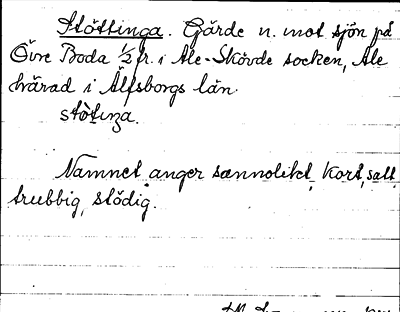 Stöttinga. Gärde n. mot sjön på
Övre Boda ½ fr. i Ale-Skövde socken, Ale
härad i Älfsborgs län.
stòtɩŋa.
Namnet anger sannolikt, kort, satt
trubbig, stödig.